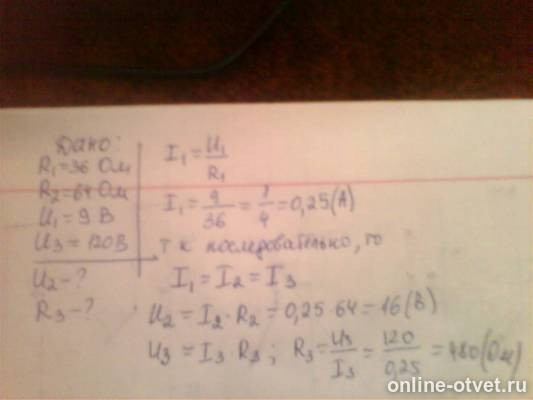 Дано:
R₁=36 Ом
R₂=64 Ом
U₁=9 В
U₃=120В
U₂-?
R₃-?
I₁=U₁/R₁
I₁=9/36=1/4=0,25(А)
т к последовательно, то
I₁=I₂=I₃
U₂=I₂·R₂=0,25·64=16(В)
U₃=I₃·R₃; R₃=U₃/I₃=120/0,25=480(Ом)
online-otvet.ru